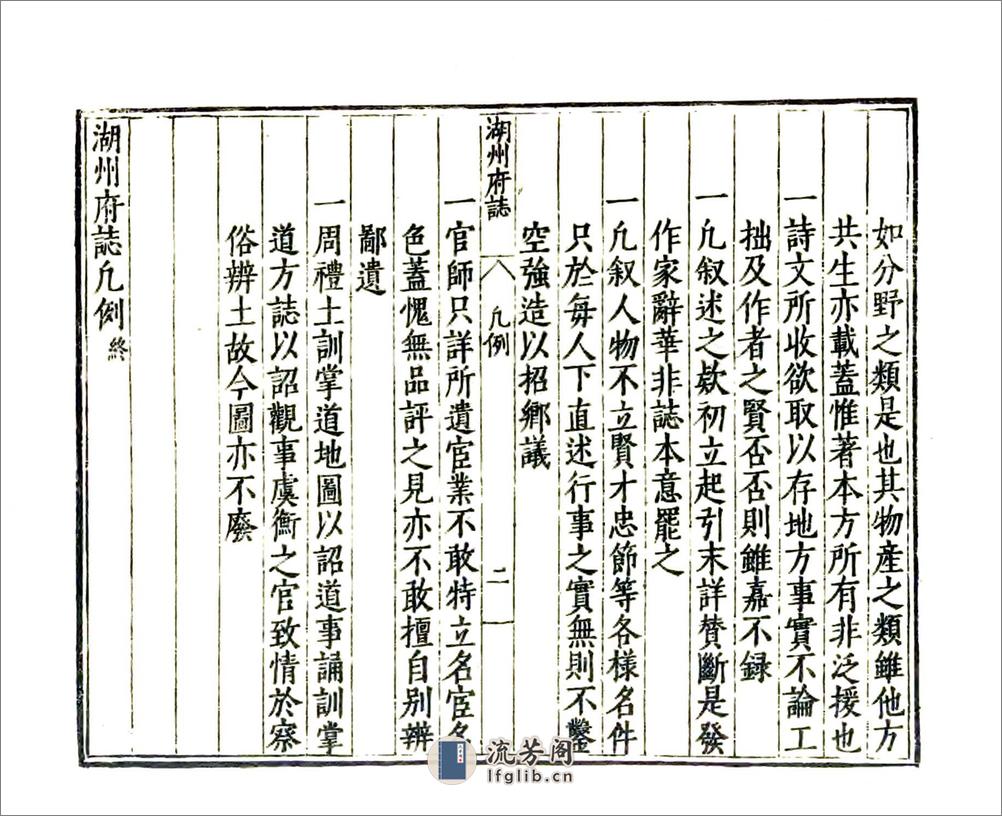 如分野之類是也其物產之類雖他方
共生亦載蓋惟著本方所有非泛援也
一詩文所收欲取以存地方事實不論工
拙及作者之賢否否則雖嘉不録
一凢叙述之欵初立起引末詳賛斷是發
作家辭華非誌本意罷之
一凢叙人物不立賢才忠節等各様名件
只於每人下直述行事之實無則不鑿
空強造以招鄉議
湖州府誌 凢例 二
一官師只詳所遺宦業不敢特立名宦名
色蓋愧無品評之見亦不敢擅自别辨
鄙遺
一周禮土訓掌道地圖以詔道事誦訓掌
道方誌以詔觀事虞衡之官致情於察
俗辨土故今圖亦不廢
湖州府誌凢例終
流芳阁
lfglib.cn